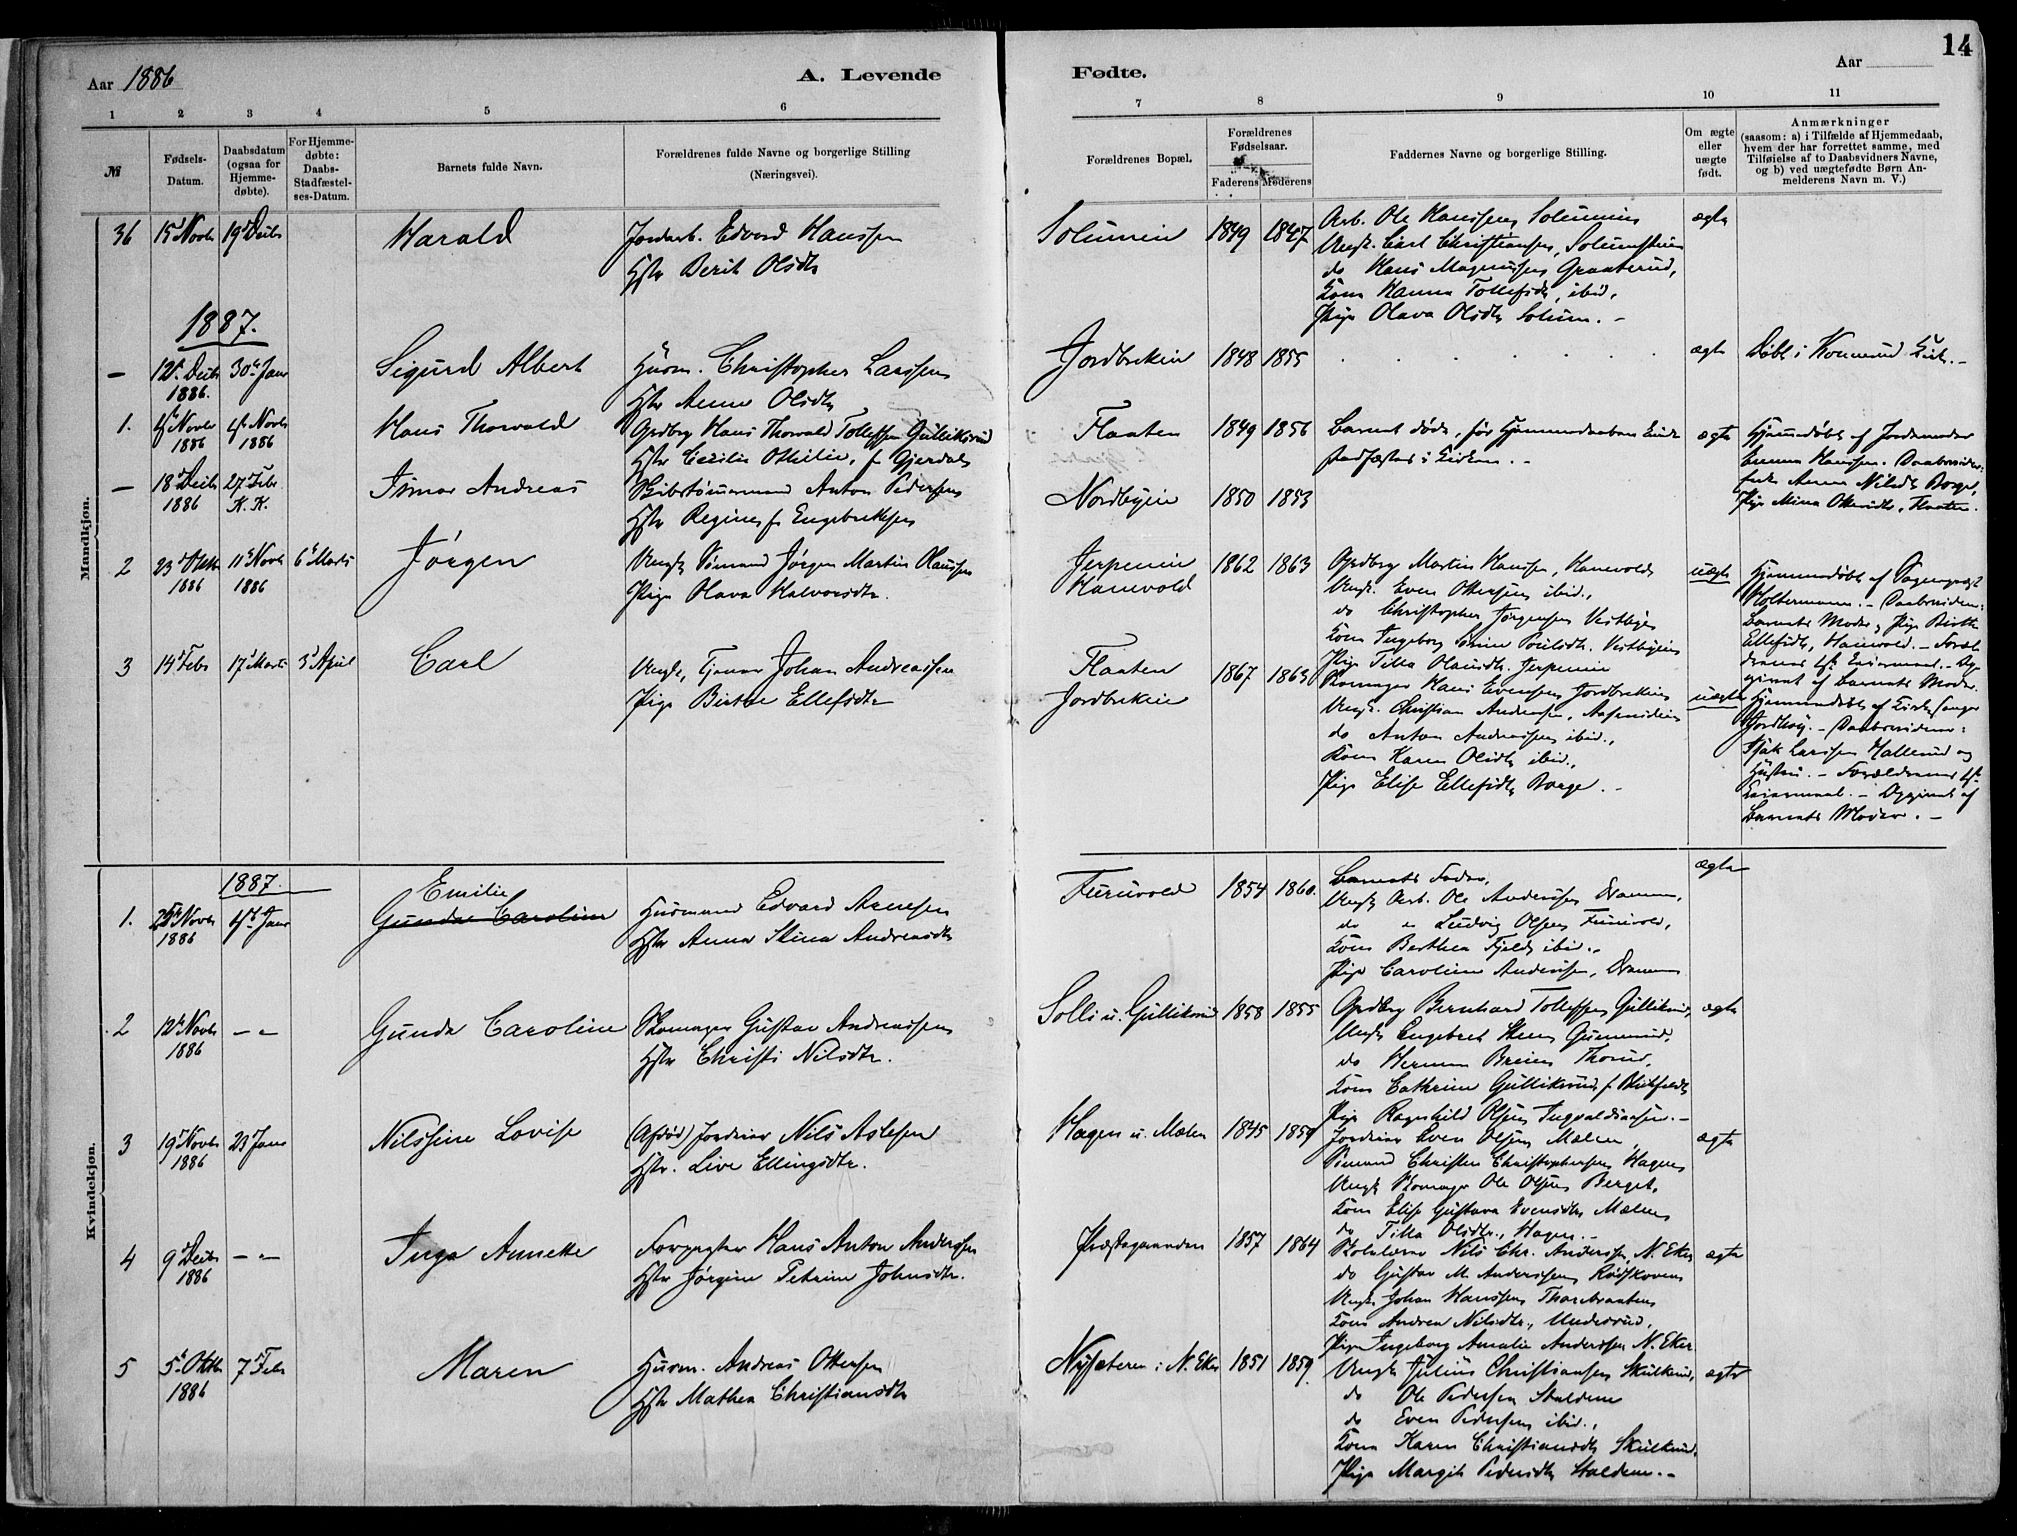 14
Aar 1886
A. Levende
Fødte.
Aar
1 2 3 4 5 6 7 8 9 10 11
№
Fødsels-
Datum.
Daabsdatum
(ogsaa for
Hjemme-
døbte).
For Hjemme-
døbte:
Daabs-
Stadfæstel-
ses-Datum.
Barnets fulde Navn.
Forældrenes fulde Navne og borgerlige Stilling
(Næringsvei).
Forældrenes Bopæl.
Forældrenes
Fødselsaar.
Faderens Moderens
Faddernes Navne og borgerlige Stilling.
Om ægte
eller
uægte
født.
Anmærkninger
(saasom: a) i Tilfælde af Hjemmedaab,
hvem der har forrettet samme, med
Tilføielse af to Daabsvidners Navne,
og b) ved uægtefødte Børn An-
melderens Navn m. V.)
Mandkjøn.
36 15 Novbr 19 Decbr Harald
Jordarb. Edvard Hanssen
Hstr Berit Olsdtr
Solumein 1849 1847
Arb. Ole Hanssen,
Ungk. Carl Christiansen,
do Hans Magnussen Graaterud,
Kone Hanna Tollefsdtr, ibid,
Pige Olava Olsdtr Solum. -
ægte
1887.
- 12 Decbr 30 Janr
1886.
Sigurd Albert
Husm. Christopher Larssen
Hstr Anne Olsdtr
Jordbrekein 1848 1855
ægte
Døbt i Konnerud Kirke. -
1. 4 Novbr 4 Novbr
1886 1886
Hans Thorvald
Grdbrg Hans Thorvald Tollefsen Gulliksrud
Hstr Cecilie Othilie, f. Gjerdal
Flaaten 1849 1856
Barnet døde, før Hjemmedaaben blev
stadfæstet i Kirken. -
ægte
Hjemmedøbt af Jordemoder
Emma Hanssen. Daabsvidner:
Enke Anne Nilsdtr Borge,
Pige Mina Ottersdtr, Flaaten.
- 18 Decbr 27 Febr
1886 K. K.
Ismar Andreas
Skibstømmermand Anton Pedersen
Hstr Regine f. Engebretsen
Nordbyein 1850 1853
2 23 Oktbr 11 Novbr 6 Marts
1886 1886
Jørgen
Ungk. Sømand Jørgen Martin Olaussen
Pige Olava Halvorsdtr.
Jerpenein
Hanevold
1862 1863
Grdbrg Martin Hanssen, Hanevold,
Ungk. Even Ottersen ibid.,
do Christopher Jørgensen Vestbyein
Kone Ingeborg Sørine Poulsdtr. Vestbyein
Pige Tilla Olausdtr. Jerpenein
uægte
Hjemmedøbt af Sogneprest
Holtermann. - Daabsvidner:
Barnets Moder, Pige Birthe
Ellefsdtr, Hanevold. - Foræl-
drenes 1ste Leiermaal. - Op-
givet af Barnets Moder.
3 14 Febr 17 Marts 3 April
Carl
Ungk, Tjener Johan Andreassen
Pige Berthe Ellefsdtr
Flaaten
Jordbrekein
1867 1863
Skomager Hans Evensen, Jordbrekein
Ungk. Christian Andersen,
do Anton Andreassen ibid.,
Kone Karen Olsdtr ibid.,
Pige Elise Ellefsdtr Borge. -
uægte
Hjemmedøbt af Kirkesanger
Nordhøy. - Daabsvidner:
Isak Larssen Hallerud og
Hustru. - Forældrenes 1ste
Leiermaal. - Opgivet af
Barnets Moder. -
Kvindekjøn.
1887.
1. 25 Novbr 4 Janr
1886
Emilie
Gunda Caroline
Husmand Edvard Arnesen
Hstr Anna Stina Andreasdtr
Furuvold 1854 1860.
Barnets Fader,
Ungk. Arb. Ole Andersen Drammen,
do " Ludvig Olsen Furuvold,
Kone Berthea Fjeld, ibid. -
Pige Caroline Andersen, Drammen
ægte
2 12 Novbr - " -
1886
Gunda Caroline
Skomager Gustav Andreassen
Hstr Christi Nilsdtr.
Solli u. Gulliksrud 1858 1855
Grdbrg Bernhard Tollefsen Gulliksrud,
Ungk Engebret Steen Gunnerud,
do Herman Breien Thorud,
Kone Cathrine Gulliksrud f.
Pige Ragnhild Olsen Ingvaldsaasen. -
ægte
3 19 Novbr 23 Janr
1886
Nilssine Lovise
(Afdød) Jordeier Nils Aslesen
Hstr. Live Ellingsdtr.
Hagen u. Mælen 1845 1859
Jordeier Even Olsen Mælen,
Sømand Christen Christophersen Hagen
Ungk. Skomager Ole Olsen Berget,
Kone Elise Gustava Evensdtr Mælen,
do Tilla Olsdtr., Hagen. -
ægte
4 9 Decbr - " -
1886
Inga Annette
Forpagter Hans Anton Andersen
Hstr Jørgine Petrine Johnsdtr.
Præstegaarden 1857 1864
Skolelærer Nils Chr. Andersen, N. Eker
do Gustav M. Andersen Rødskoven
Ungk. Johan Hanssen Thorebraaten
Kone Andrea Nilsdtr., Underrud,
Pige Ingeborg Amalie Andersen N. Eker
ægte
5 5 Oktbr 7 Febr
1886
Maren
Husm. Andreas Ottersen
Hstr Mathea Christiansdtr
Nysæteren i N. Eker 1851 1859
Ungk Julius Christiansen Skulkrud,
do Ole Pedersen Stalden
do Even Pedersen ibid.,
Kone Karen Christiansdtr Skulkrud,
Pige Margit Pedersdtr Stalden. -
ægte